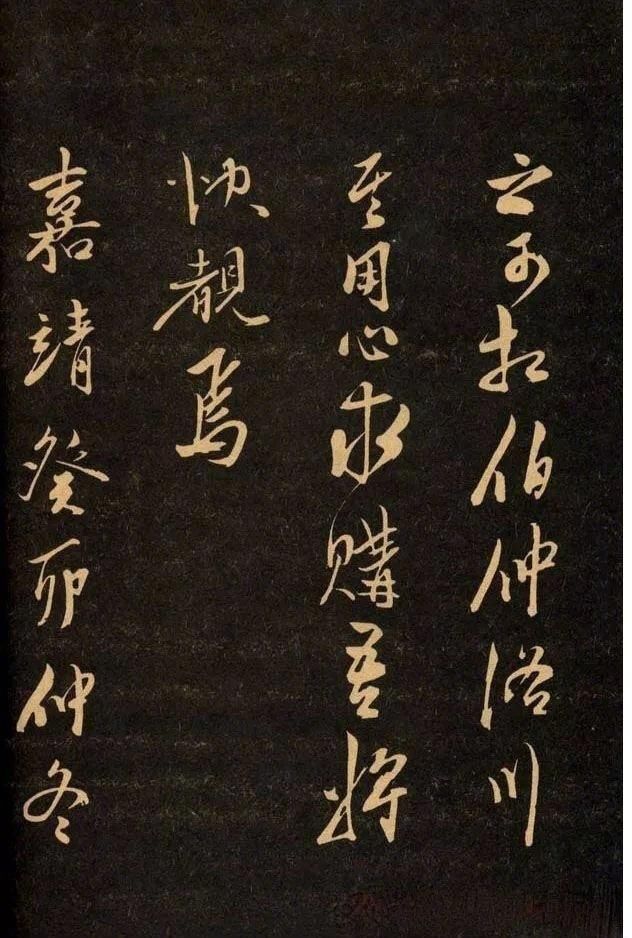 之可相伯仲浴川
其用心求購吾將
快覩焉
嘉靖癸卯仲冬